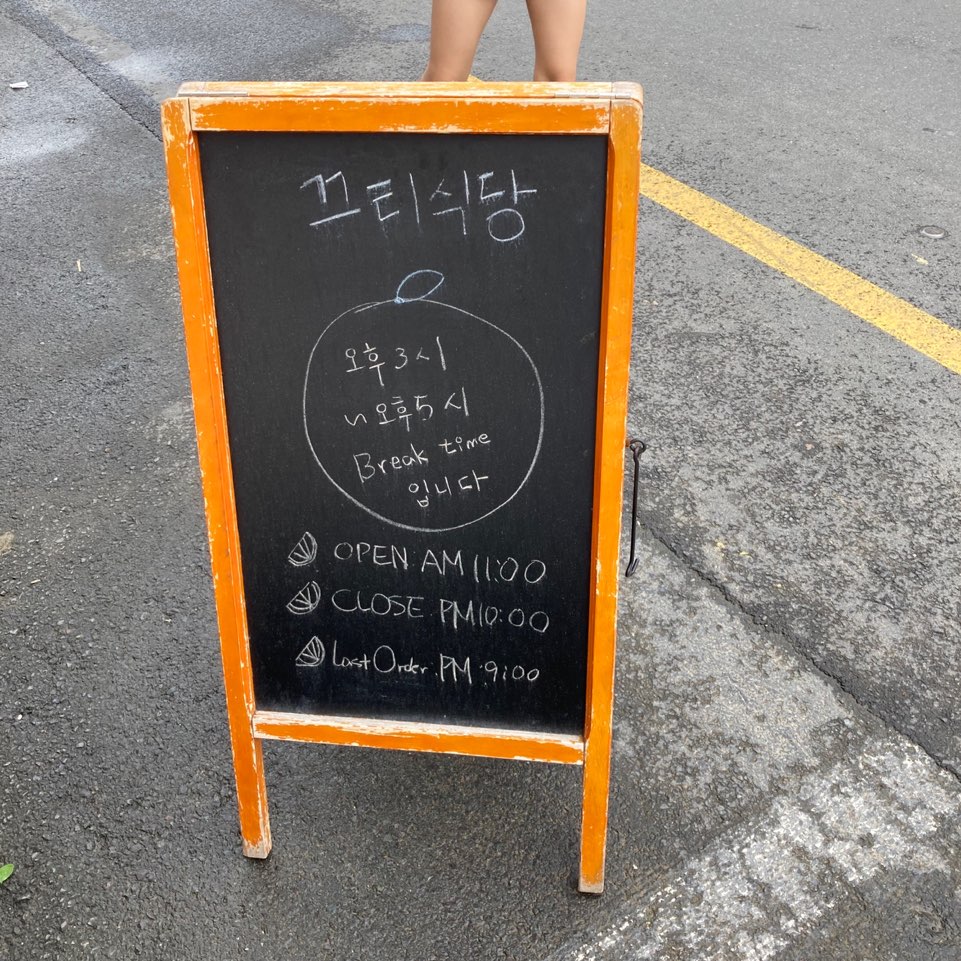 끄티식당
오후 3시
~ 오후 5시
Break time
입니다
OPEN AM 11:00
CLOSE. PM 10:00
Last Order. PM 9:00